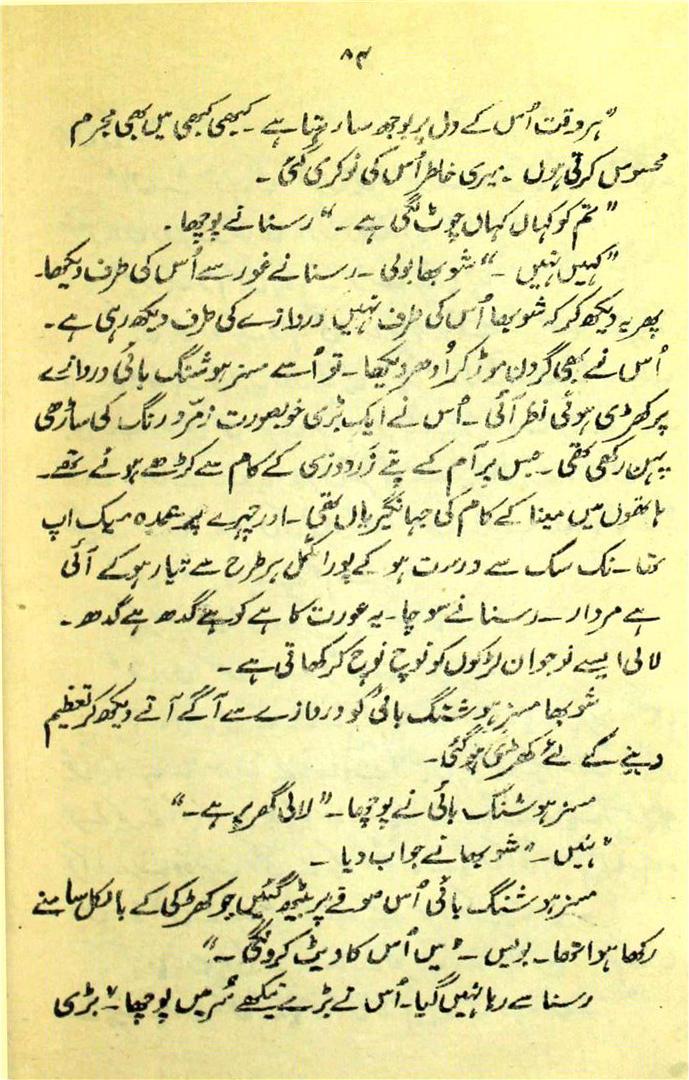 ۸۴
"ہر وقت اُس کے دل پر بوجھ سا رہتا ہے۔ کبھی کبھی میں بھی مجرم
محسوس کرتی ہوں۔ میری خاطر اُس کی نوکری گئی۔
"تم کو کہاں کہاں چوٹ لگی ہے۔" رسنا نے پوچھا۔
"کہیں نہیں۔" شوبھا بولی۔ رسنا نے غور سے اُس کی طرف دیکھا۔
پھر یہ دیکھ کر کہ شوبھا اُس کی طرف نہیں دروازے کی طرف دیکھ رہی ہے۔
اُس نے بھی گردن موڑ کر اُدھر دیکھا۔ تو اُسے مسز ہوشنگ بائی دروازے
پر کھڑی ہوئی نظر آئی۔ اُس نے ایک بڑی خوبصورت زمّرد رنگ کی ساڑھی
پہن رکھی تھی۔ جس پر آم کے پتے زَردوزی کے کام سے کڑھے ہوئے تھے۔
ہاتھوں میں مینا کے کام کی جہانگیریاں تھی۔ اور چہرے پر عمدہ میک اپ
تھا۔ نک سک سے درست ہو کے پورا مکمل ہر طرح سے تیار ہو کے آئی
ہے مردار۔ رسنا نے سوچا۔ یہ عورت کاہے کو ہے گدھ ہے گدھ۔
لالی ایسے نوجوان لڑکوں کو نوچ نوچ کر کھاتی ہے۔
شوبھا مسز ہوشنگ بائی کو دروازے سے آگے آتے دیکھ کر تعظیم
دینے کے لئے کھڑی ہو گئی۔
مسز ہوشنگ بائی نے پوچھا۔ "لالی گھر پر ہے۔"
"نہیں۔" شوبھا نے جواب دیا۔
مسز ہوشنگ بائی اُس صوفے پر بیٹھ گئیں جو کھڑکی کے بالکل سامنے
رکھا ہوا تھا۔ بولیں۔ "میں اُس کا ویٹ کرونگی۔"
رسنا سے رہا نہیں گیا۔ اُس نے بڑے تیکھے سُر میں پوچھا۔ "بڑی